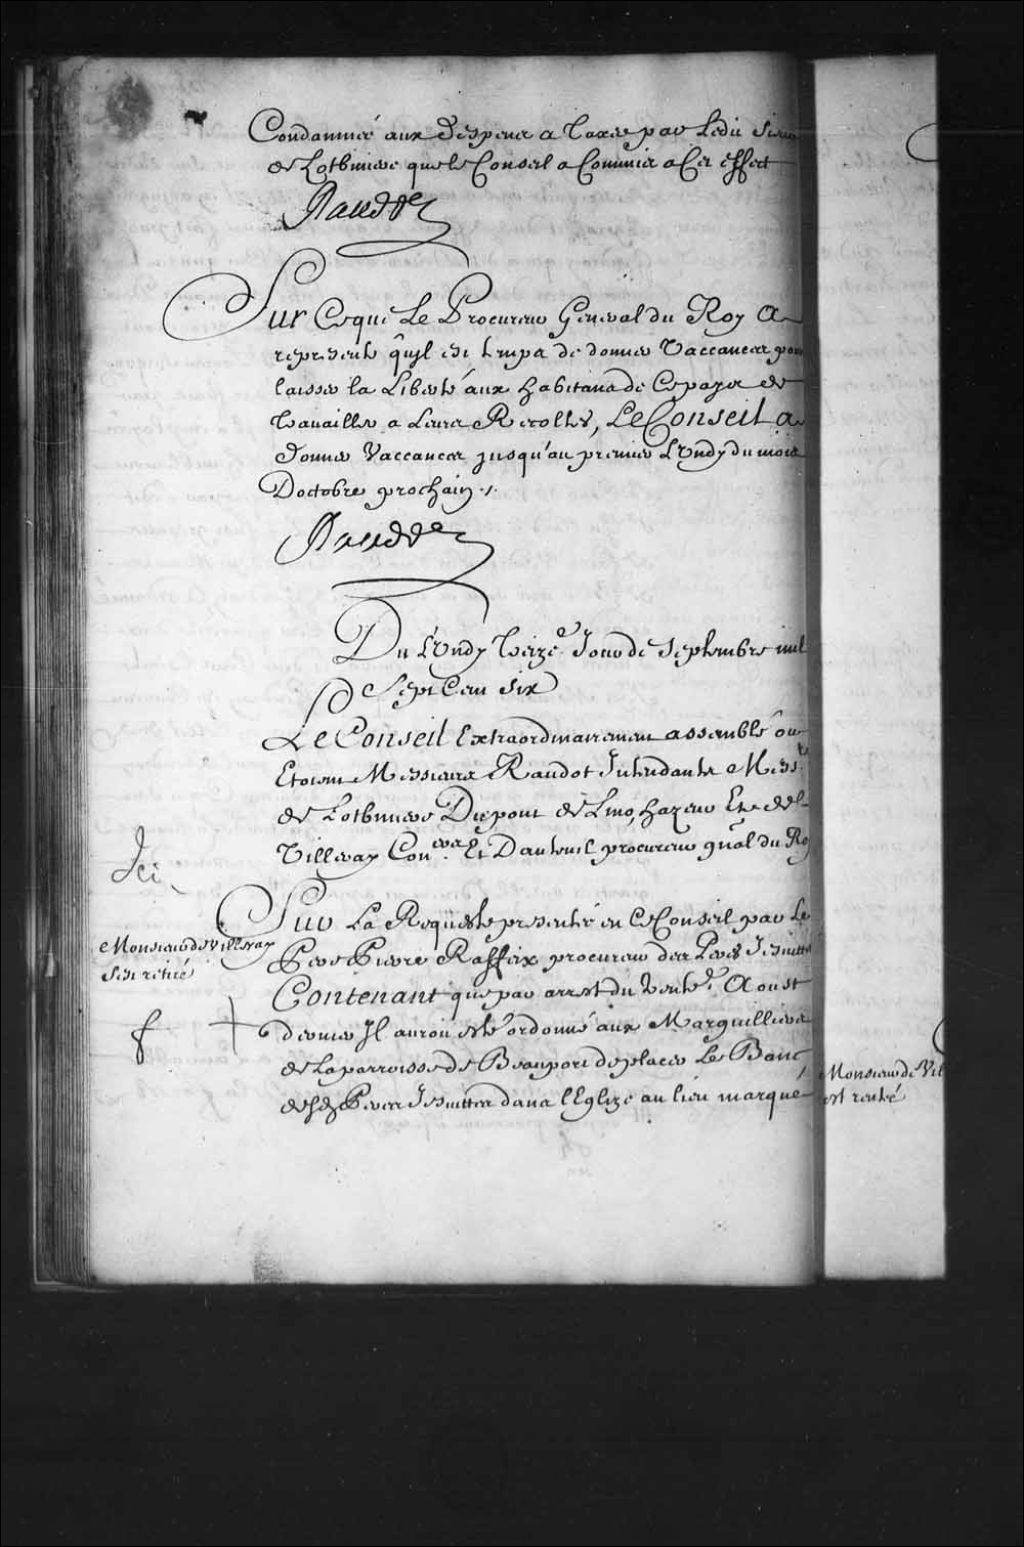 Condamnée aux despens a taxer par Ledit Sieur
de Lotbiniere que le Conseil a Commis a Cet effect
Raudot
Sur Ceque Le Procureur General du Roy A
representé quyl est temps de donner Vaccances pour
laisser la Liberté aux habitans de Ce pays de
travailler a Leurs Recoltes, Le Conseil a
donné Vaccances jusqu'au premier Lundy du mois
Doctobre prochain ./.
Raudot
Du Lundy treize.e Jour de Septembre mil
Sept Cent Six
Le Conseil Extraordinairement assemblé ou
Etoient Messieurs Raudot Intendants Mess.rs
de Lotbiniere Dupont de Lino, hazeur Et de
Villeray Con.ers Et Dauteuil procureur gnal du Roy
Ici
Sur La Requeste presentée en Ce Conseil par Le
Monsieur de Villeray
s'est retiré
Pere Pierre Raffeix procureur des Peres Jesuittes
Contenant que par arrest du trente.e Aoust
dernier Il auroit esté ordonné aux Marguilliers
de La parroisse de Beauport de placer Le Banc
desd Peres Jesuittes dans l'Eglize au lieu marqué
Monsieur de Vil
est rentré